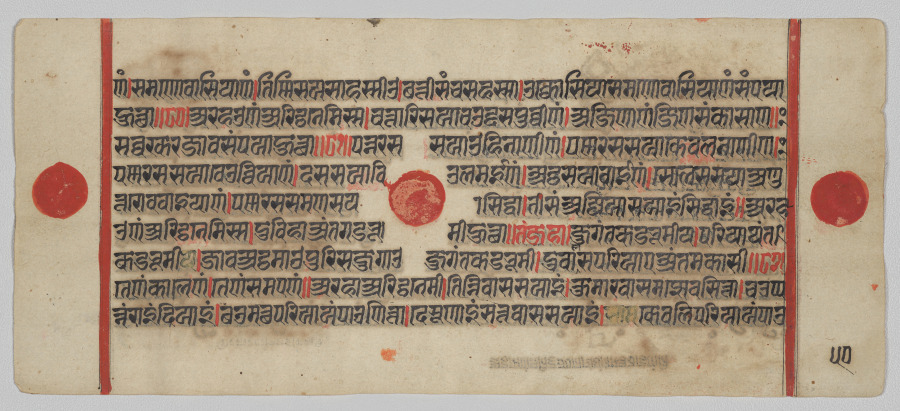 णं।समणोवासियाणं।तिन्निसयसाहस्सीउ।छत्तीसंचसहस्सा।उक्कोसियासमणोवासियाणंसंपया
हुत्था॥अरहउणंअरिट्ठनेमिस्स।चत्तारिसयाचउद्दसपुव्वीणं।अजिणाणंजिणसंकासाणं।
सव्वक्खरजावसंपयाहुत्था॥पन्नरस सयाउहिनाणीणं।पन्नरससयाकेवलनाणीणं।
पन्नरससयावेउव्वियाणं।दससयावि उलमईणं।अट्ठसयावाईणं।सोलससयाअणु
त्तरोववाइयाणं।पन्नरससमणसय ासिद्धा।तीसंअज्जियासयाइंसिद्धाइं॥अरह
उणंअरिट्ठनेमिस्स।दुविहाअंतगडभू मीहुत्था॥तंजहा।जुगंतकडभूमीय।परियायंत
कडभूमीय।जावअट्ठमाउपुरिसजुगाउ जुगंतकडभूमी।दुवासपरियाएअंतमकासी॥
तेणंकालेणं।तेणंसमएणं॥अरहाअरिट्ठनेमी।तिन्निवाससयाइं।कुमारवासमज्झेवसित्ता।चउप्प
न्नंराइंदियाइं।छउमत्थपरियायंपाउणित्ता।देसूणाइंसत्तवाससयाइं।केवलिपरियायंपाउ
५०